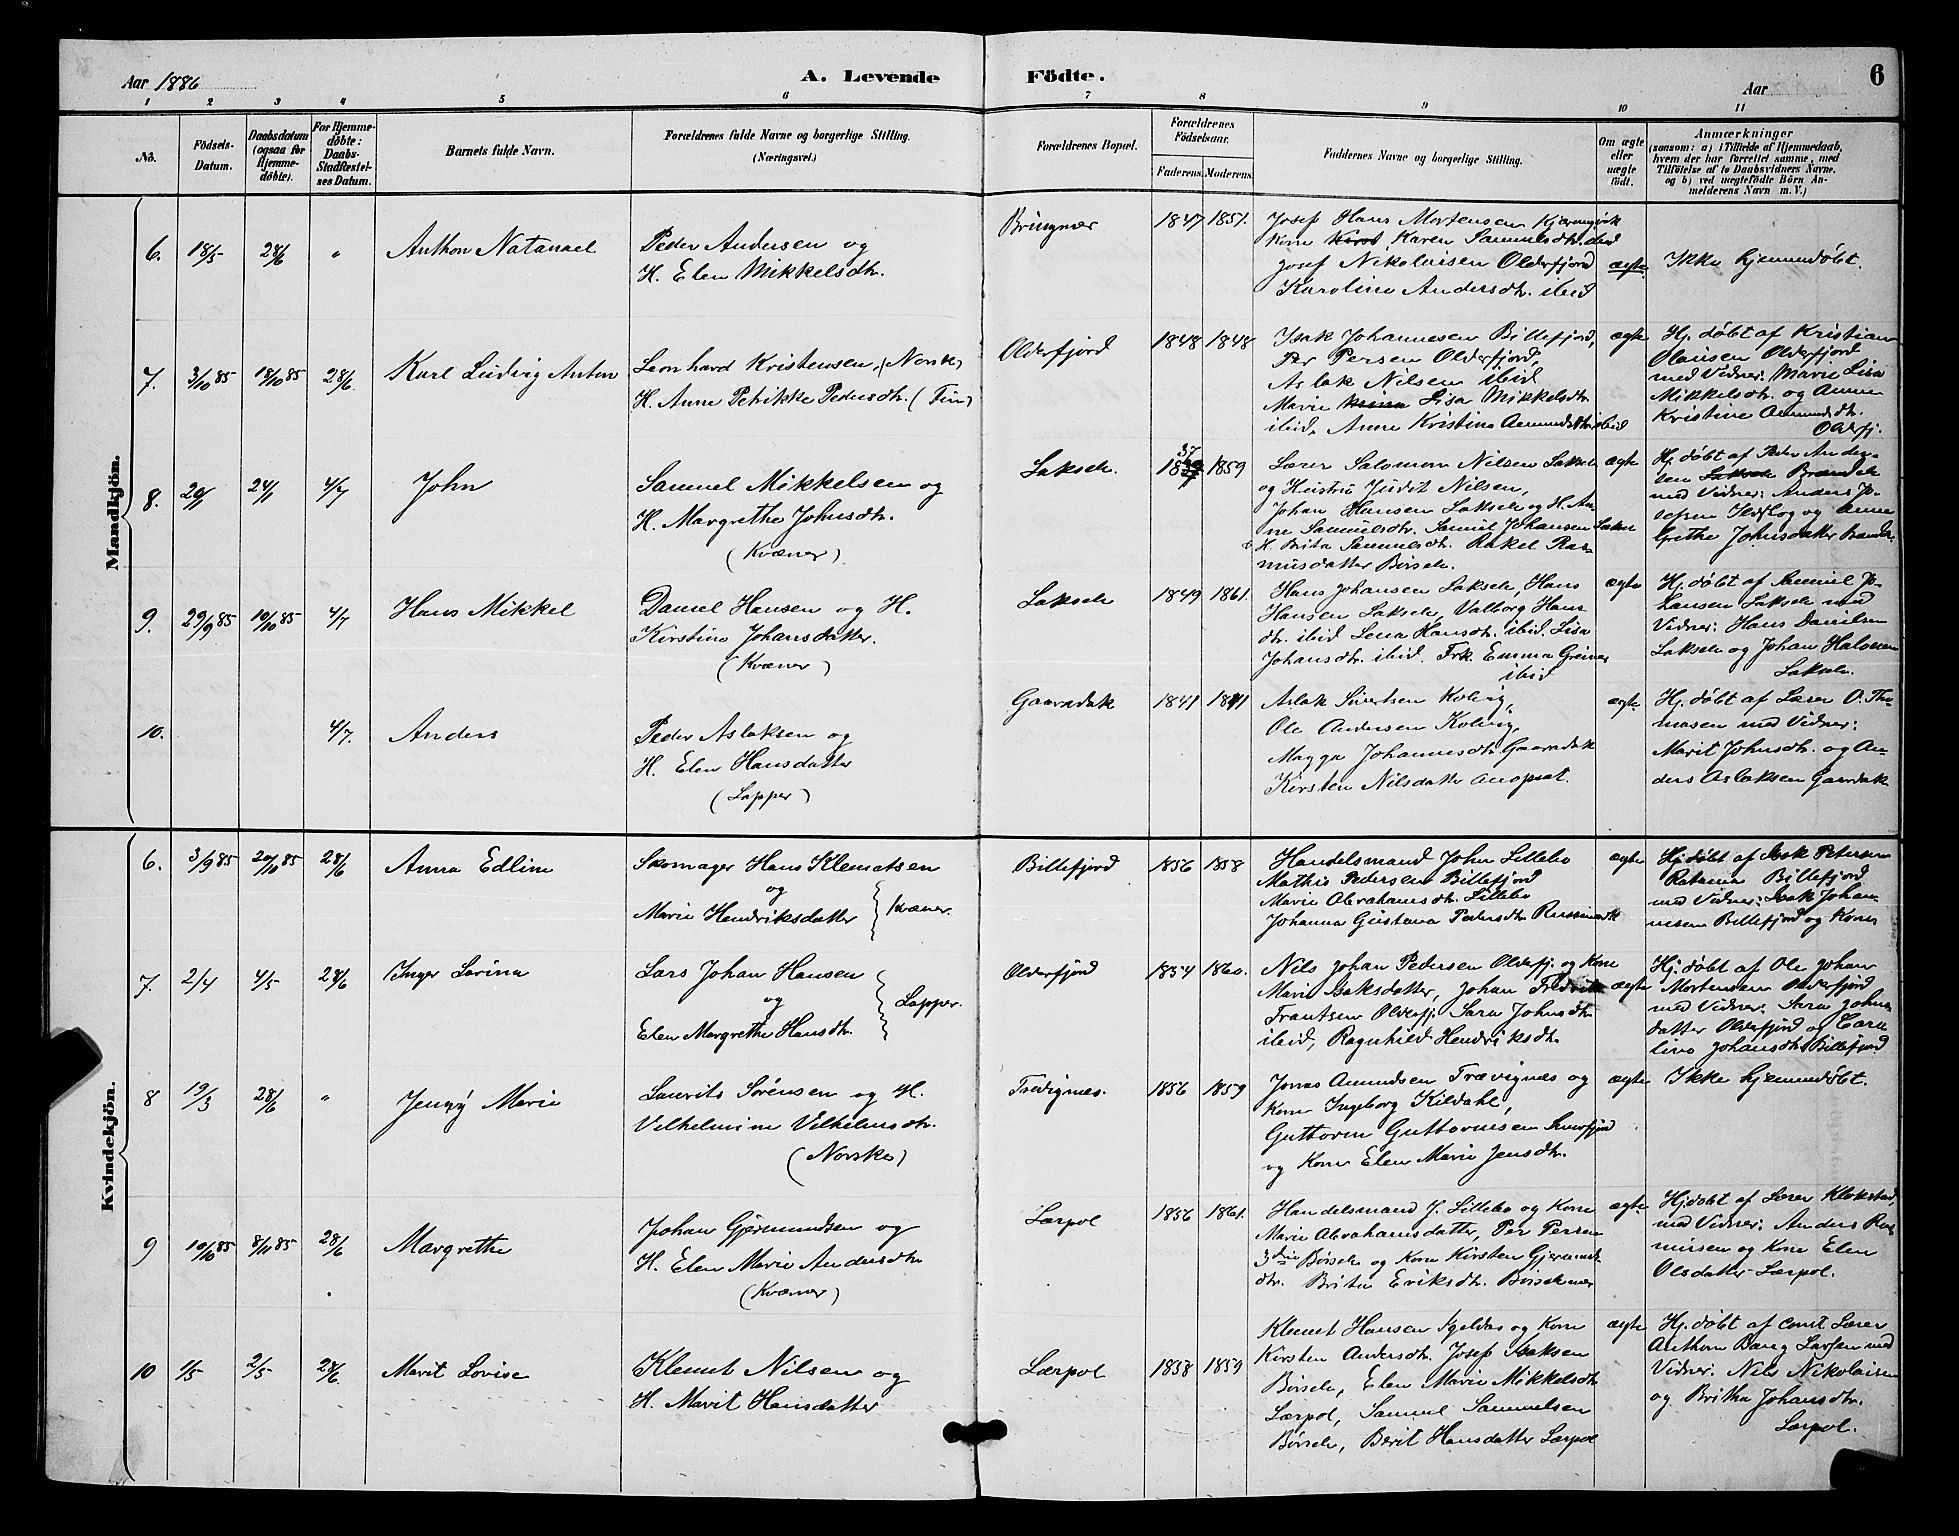 Aar 1886
A. Levende Födte.
Aar
6
1 2 3 4 5 6 7 8 9 10 11
No.
Födsels-Datum.
Daabsdatum (ogsaa for Hjemme-döbte).
For Hjemme-döbte: Daabs-Stadfæstel-ses Datum.
Barnets fulde Navn.
Forældrenes fulde Navne og borgerlige Stilling. (Næringsvei.)
Forældrenes Bopæl.
Forældrenes Födselsaar.
Faderens. Moderens.
Faddernes Navne og borgerlige Stilling.
Om ægte eller uægte födt.
Anmærkninger
(saasom: a) i Tilfælde af Hjemmedaab, hvem der har forrettet samme, med Tilföielse af to Daabsvidners Navne, og b) ved uægtefödte Börn An-melderens Navn m. V.)
Mandkjön.
6. 18/5 28/6 " Anthon Natanael
Peder Andersen og
H. Elen Mikkelsdtr.
Bringnær 1847 1851.
Josef Hans Mortensen
Kone Karen Samuelsdtr. ibid
Josef Nikolaisen Olderfjord
Karoline Andersdtr. ibid
ægte. Ikke hjemmedøbt.
7. 3/10 85 18/10 85 28/6. Karl Ludvig Anton
Leonhard Kristensen, (Norsk)
H. Anne Petrikke Pedersdtr. (Fin)
Olderfjord 1848 1848
Isak Johannesen Billefjord,
Per Persen Olderfjord,
Aslak Nilsen ibid
Marie Lisa Mikkelsdtr.
ibid, Anne Kristina Amundsdtr ibid
ægte
Hj. døbt af Kristian
Olausen Olderfjord
med Vidner: Marie Lisa
Mikkelsdtr. og Anne
Kristine Amundsdtr.
Olderfj.
8. 24/1 4/7 John
Samuel Mikkelsen og
H. Margrethe Johnsdtr.
(Kvæner)
Laksele. 1837 1859
Lærer Salomon Nilsen Laksele
og Hustru Judit Nilsen,
Johan Hansen Laksele og H. An-
ne Samuelsdtr. Samuel Johansen Laksel
H. Brita Samuelsdtr. Rakel Ras-
musdatter Børsele.
ægte
Hj. døbt af Peder Ander-
sen Brændele
med Vidner: Anders Jo-
sefsen og Anne
Grethe Johnsdatter
9. 29/9 85 10/10 85 4/7 Hans Mikkel
Daniel Hansen og H.
Kirstine Johansdatter.
(Kvæner)
Laksele 1849 1861.
Hans Johansen Laksele, Hans
Hansen Laksele, Valborg Hans
dtr. ibid Lena Hansdtr. ibid. Lisa
Johansdtr. ibid. Frk. Emma Greiner
ibid
ægte
Hj. døbt af Samuel Jo-
hansen Laksele med
Vidner: Hans Danielsen
Laksele og Johan Halonen
Laksele.
10. 4/7. Anders
Peder Aslaksen og
H. Elen Hansdatter
(Lapper)
Gaaradak 1841 1841
Aslak Sivertsen Kolvig,
Ole Andersen Kolvig,
Magga Johannesdtr. Gaaradak
Kirsten Nilsdatter
ægte
Hj. døbt af Lærer O. Tho-
masen med Vidner:
Marit Johnsdtr. og An-
ders Aslaksen Gaaradak
Kvindekjön.
6. 3/9 85 20/10 85 28/6 Anna Edline
Skomager Hans Klemetsen
og
Marie Hendriksdatter
Kvæner.
Billefjord 1856 1858
Handelsmand John Lillebo
Mathis Pedersen Billefjord
Marie Abrahamsdtr. Lillebo
Johanna Gustava Pedersdtr
ægte
Hj. døbt af Isak Petersen
Ratama Billefjord
med Vidner: Isak Johan-
nesen Billefjord og Kone
7. 2/4 4/5 28/6 Inger Lovina
Lars Johan Hansen
og
Elen Margrethe Hansdtr.
Lapper.
Olderfjord 1854 1860.
Nils Johan Pedersen Olderfj. og Kone
Marie Isaksdatter, Johan Fredrik
Frantsen Olderfj. Sara Johnsdtr
ibid, Ragnhild Hendriksdtr.
ægte
Hj. døbt af Ole Johan
Mortensen Olderfjord
med Vidner: Sara Johns
datter Olderfjord og Caro
line Johansdtr. Billefjord
8 19/3 28/6 " Jenny Marie
Laurits Sørensen og H.
Vilhelmine Vilhelmsdtr.
(Norske)
1856 1859
Jonas Amundsen Trævignes og
Kone Ingeborg Kildahl,
Guttorm Guttormsen
og Kone Elen Marie Jensdtr.
ægte Ikke hjemmedøbt.
9 10/10 85 8/11 85 28/6. Margrethe
Johan Gjermundsen og
H. Elen Marie Andersdtr.
(Kvæner)
Lærpol 1856 1861.
Handelsmand J. Lillebo og Kone
Marie Abrahamsdatter, Per Persen
3die Børsele og Kone Kirsten Gjermunds-
dtr. Brita Eriksdtr. Børselvnes
ægte
Hj. døbt af Lærer Klokstad,
med Vidner: Anders Ras
musen og Kone Elen
Olsdatter Lærpol.
10 1/5 2/5 28/6. Marit Lovise
Klemet Nilsen og
H. Marit Hansdatter
Lærpol 1858 1859
Klemet Hansen og Kone
Kirsten Andersdtr. Josef Isaksen
Børsele, Elen Marie Mikkelsdtr
Lærpol, Samuel Samuelsen
Børsele, Berit Hansdatter Lærpol
ægte
Hj. døbt af const Lærer
Anthon Larsen med
Vidner: Nils Nikolaisen
og Britha Johansdtr.
Lærpol.